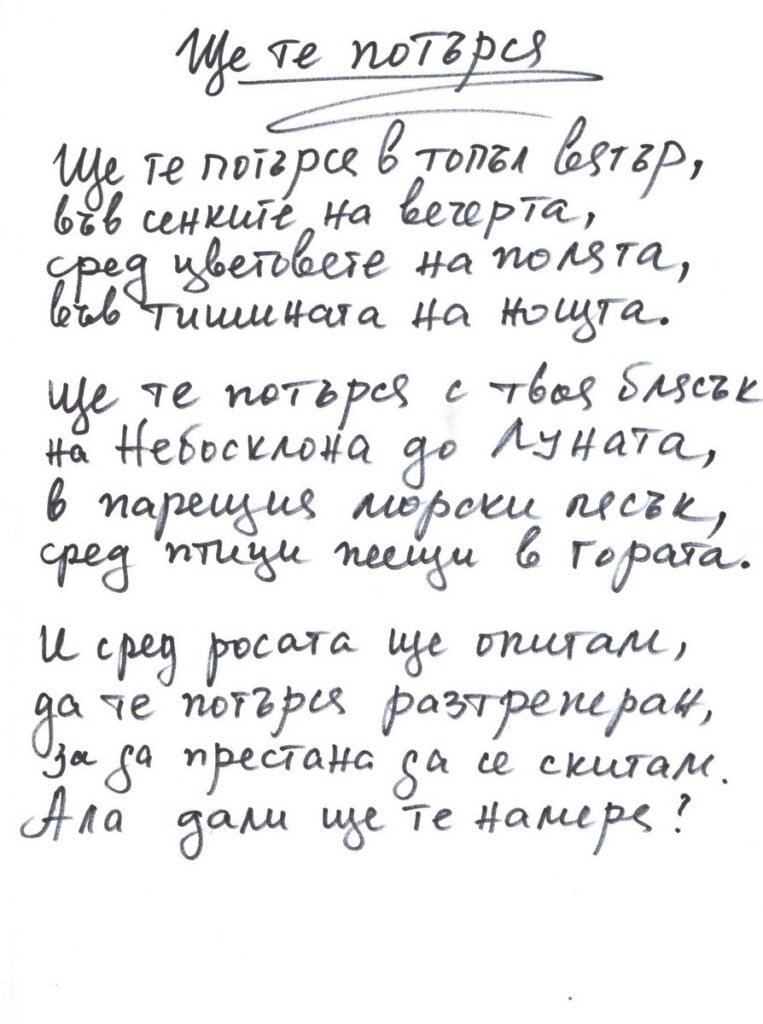 Ще те потърся
Ще те потърся в топъл вятър,
във сенките на вечерта,
сред цветовете на полята,
във тишината на нощта.
Ще те потърся с твоя блясък
на Небосклона до Луната,
в парещия морски пясък,
сред птици пеещи в гората.
И сред росата ще опитам,
да те потърся разтреперан,
за да престана да се скитам.
Ала дали ще те намеря?